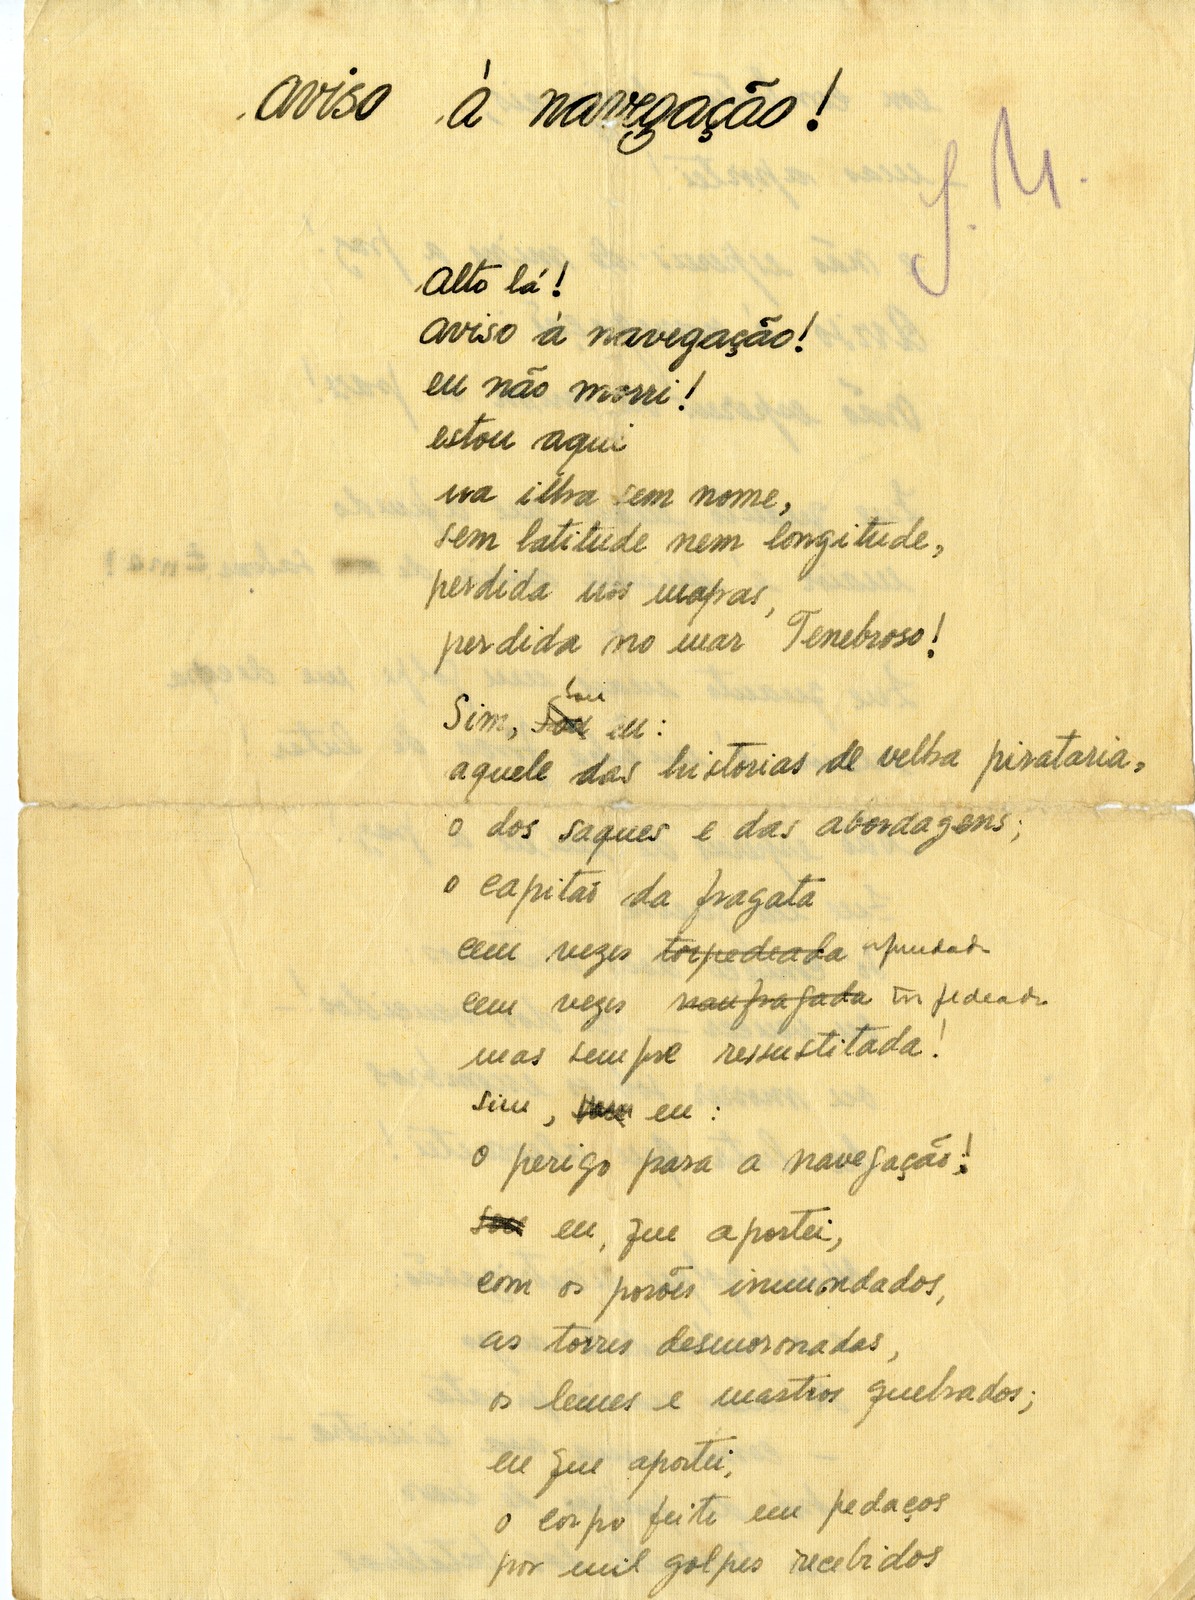 aviso à navegação!
J. M.
Alto lá!
aviso à navegação!
eu não morri!
estou aqui
na ilha sem nome,
sem latitude nem longitude,
perdida nos mapas,
perdida no mar Tenebroso!
Sim, sou eu:
aquele das historias de velha pirataria,
o dos saques e das abordagens;
o capitaõ da fragata
cem vezes torpedeada afundada
cem vezes naufragada torpedeada
mas sempre ressustitada!
sim, sou eu:
o perigo para a navegação!
sou eu, que aportei,
com os porões inuundados,
as torres desmoronadas,
os lemes e mastros quebrados;
eu que aportei,
o corpo feito em pedaços
por mil golpes recebidos